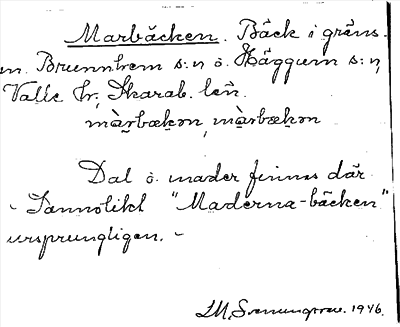 Marbäcken. Bäck i gräns.
m. Brunnhem s:n o. Häggum s:n,
Valle hr, Skarab. län.
màrbækən, màrbækən
Dal o. mader finnas där.
- Sannolikt "Maderna-bäcken"
ursprungligen. -
1946.